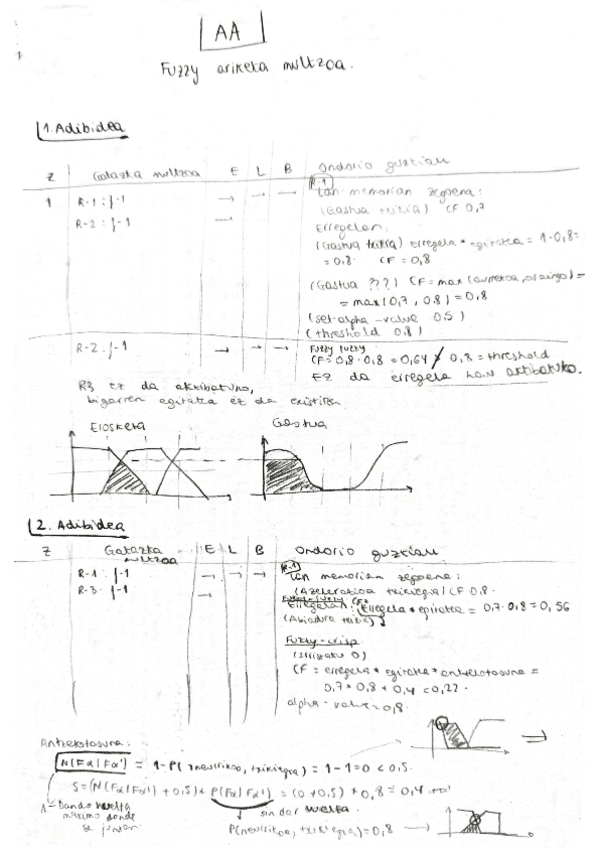 AA
Fuzzy ariketa multzoa.
1. Adibidea
Z Gatazka multzoa E L B Ondorio guztiak
1 R-1: f-1 → → → R-1 Lan-memorian zegoena:
(Gastua txikia) CF 0,7
R-2: f-1 →
Erregelan:
(Gastua txikia) erregela * egitatea = 1·0,8=
= 0,8 CF = 0,8
(Gastua ???) CF = max(aurrekoa, oraingo) =
= max(0,7, 0,8) = 0,8
(set-alpha-value 0.5)
(threshold 0.8)
R-2: f-1 → → → Fuzzy fuzzy
CF = 0,8·0,8 = 0,64 ≯ 0,8 = threshold
Ez da erregela hau aktibatuko.
R3 ez da aktibatuko,
bigarren egitatea ez da existitzen
Erosketa Gastua
2. Adibidea
Z Gatazka multzoa E L B Ondorio guztiak
R-1: f-1 → → → R-1 Lan memorian zegoena:
(Azelerazioa txikiegia) CF 0.8
R-3: f-1 →
Fuzzy-fuzzy CF=
Erregelan: Erregela * egitatea = 0,7·0,8 = 0,56
(Abiadura txikia)
Fuzzy-crisp
CF = erregela * egitatea * antzekotasuna =
0,7 * 0,8 * 0,4 = 0,22
alpha-value = 0,8
Antzekotasuna:
N(Fα|Fα') = 1-P( txikiegia) = 1-1=0 < 0,5
S=(N(Fα|Fα') + 0,5) * P(Fα|Fα') = (0+0,5) * 0,8 = 0,4
1= Dando vuelta
máximo donde
se juntan
sin dar vuelta.
P(neurrikoa, txikiegia) = 0,8 →